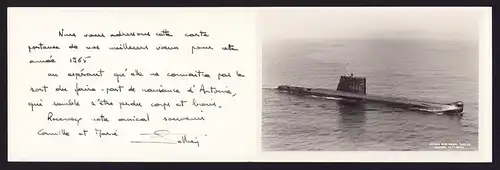 Nous vous adressons cette carte
porteuse de nos meilleurs vœux pour cette
année 1965
en espérant qu'elle ne connaitra pas le
sort du faire-part de naissance d'Antoine,
qui semble s'être perdu corps et biens.
Recevez notre amical souvenir
Camille et Marie